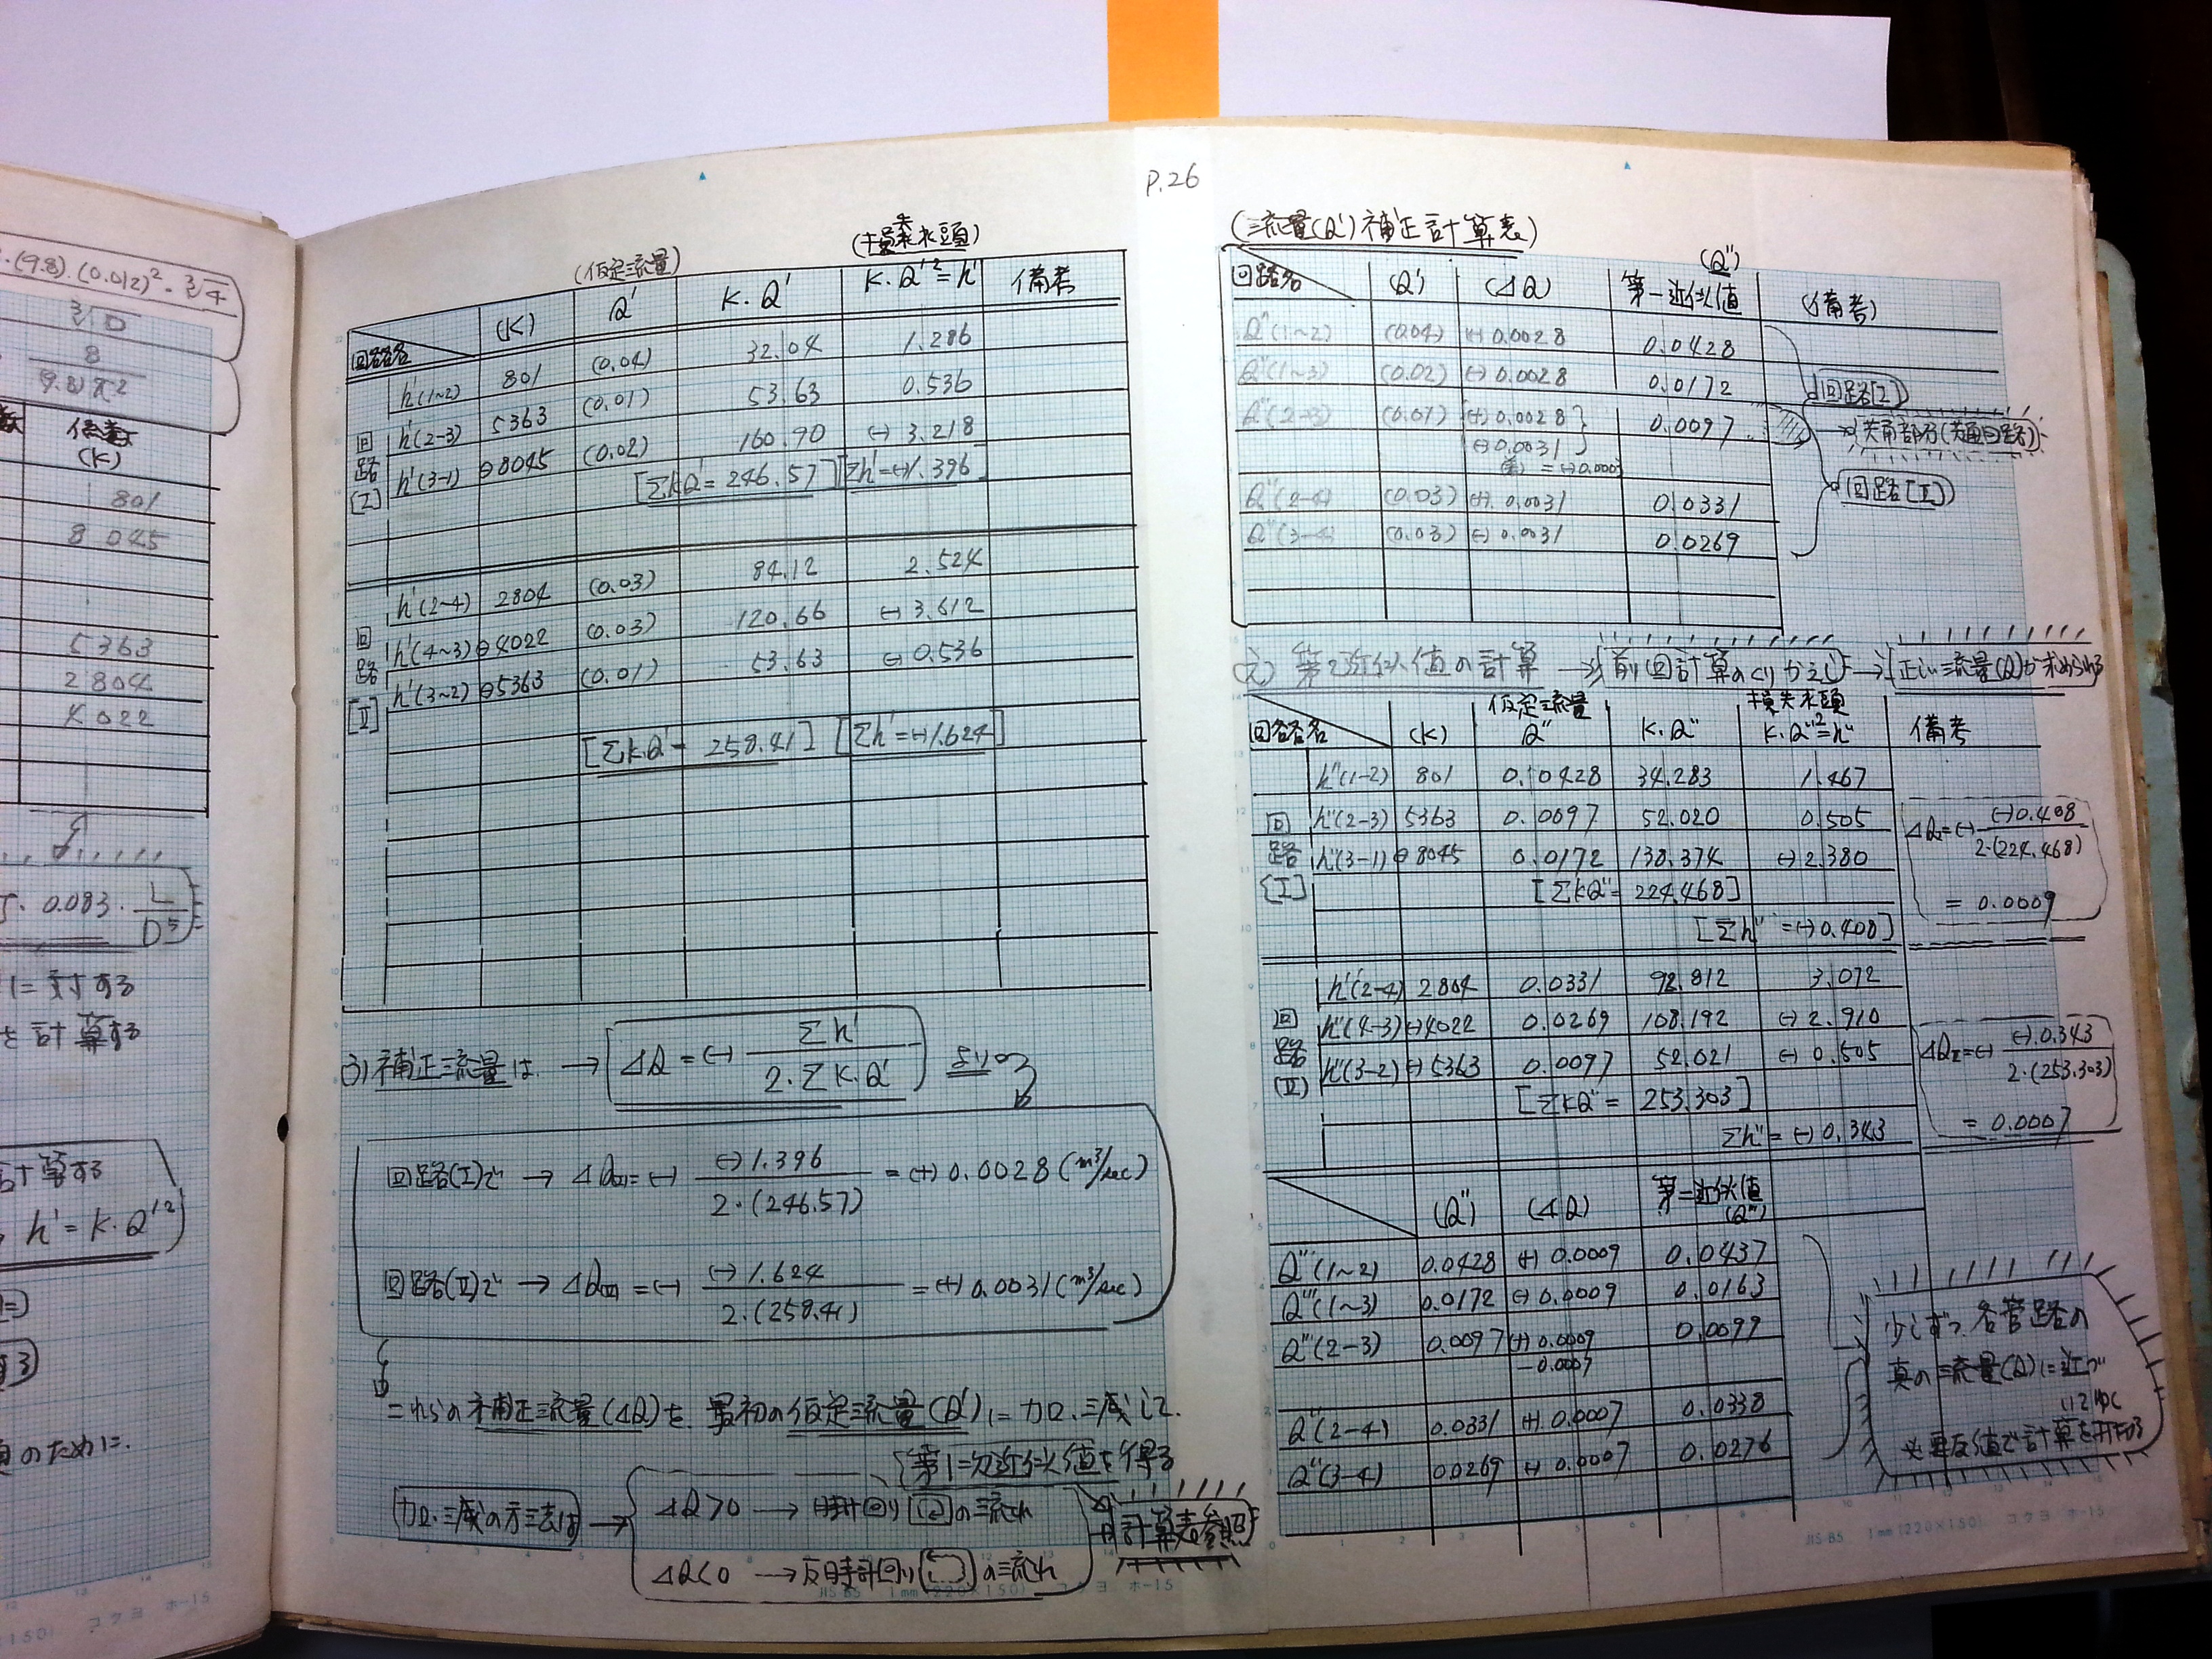 P.26
(9.8).(0.012)². ∛4
∛D
8
(9.8)π²
係数
(K)
801
8045
5363
2804
4022
0.083. L/D⁵
に対する
を計算する
計算する
h'=K.Q'²
のために.
(仮定流量)
(損失水頭)
回路名 (K) Q' K.Q' K.Q'²=h' 備考
回路[I]
h'(1~2) 801 (0.04) 32.04 1.286
h'(2~3) 5363 (0.01) 53.63 0.536
h'(3~1) ⊖8045 (0.02) 160.90 (-)3.218
[ΣKQ'=246.57] [Σh'=(-)1.396]
回路[II]
h'(2~4) 2804 (0.03) 84.12 2.524
h'(4~3) ⊖4022 (0.03) 120.66 (-)3.612
h'(3~2) ⊖5363 (0.01) 53.63 (-)0.536
[ΣK.Q'= 258.41] [Σh'=(-)1.624]
3) 補正流量は → ΔQ=(-) Σh' / 2.ΣK.Q' より
回路(I)で → ΔQ(I)=(-) (-)1.396 / 2.(246.57) =(+)0.0028(m³/sec)
回路(II)で → ΔQ(II)=(-) (-)1.624 / 2.(258.41) =(+)0.0031(m³/sec)
これらの補正流量(ΔQ)を、最初の仮定流量(Q')に加、減して.
第1次近似値を得る
加、減の方法は → ΔQ>0 → 時計回りの流れ
ΔQ<0 → 反時計回りの流れ
計算表参照
JIS B5 1mm(220×150) コクヨ ホ-15
(流量(Q')補正計算表)
(Q'')
回路名 (Q') (ΔQ) 第一近似値 (備考)
Q''(1~2) (0.04) (+)0.0028 0.0428
Q''(1~3) (0.02) (-)0.0028 0.0172
Q''(2~3) (0.01) (+)0.0028 0.0097
(-)0.0031
Q''(2~4) (0.03) (+)0.0031 0.0331
Q''(3~4) (0.03) (-)0.0031 0.0269
共有部分(共通回路)
第2近似値の計算 → 前回計算のくりかえし → 正しい流量(Q)が求められる
回路名 (K) 仮定流量 Q'' K.Q'' 損失水頭 K.Q''²=h'' 備考
回路[I]
h''(1~2) 801 0.0428 34.283 1.467
h''(2~3) 5363 0.0097 52.020 0.505
h''(3~1) ⊖8045 0.0172 138.374 (-)2.380
[ΣKQ''= 224.468]
[Σh''=(-)0.408]
ΔQI=(-) (-)0.408 / 2.(224.468)
= 0.0009
回路(II)
h'(2~4) 2804 0.0331 92.812 3.072
h''(4~3) (-)4022 0.0269 108.192 (-)2.910
h''(3~2) (-)5363 0.0097 52.021 (-)0.505
[ΣKQ''= 253.303]
Σh''=(-)0.343
ΔQII=(-) (-)0.343 / 2.(253.303)
= 0.0007
(Q'') (ΔQ) 第一近似値 (Q''')
Q'''(1~2) 0.0428 (+)0.0009 0.0437
Q'''(1~3) 0.0172 (-)0.0009 0.0163
Q'''(2~3) 0.0097 (+)0.0009 0.0099
-0.0007
Q''(2~4) 0.0331 (+)0.0007 0.0338
Q''(3~4) 0.0269 (+)0.0007 0.0276
少しずつ、各管路の
真の流量(Q)に近づ
いてゆく
JIS B5 1mm(220×150) コクヨ ホ-15